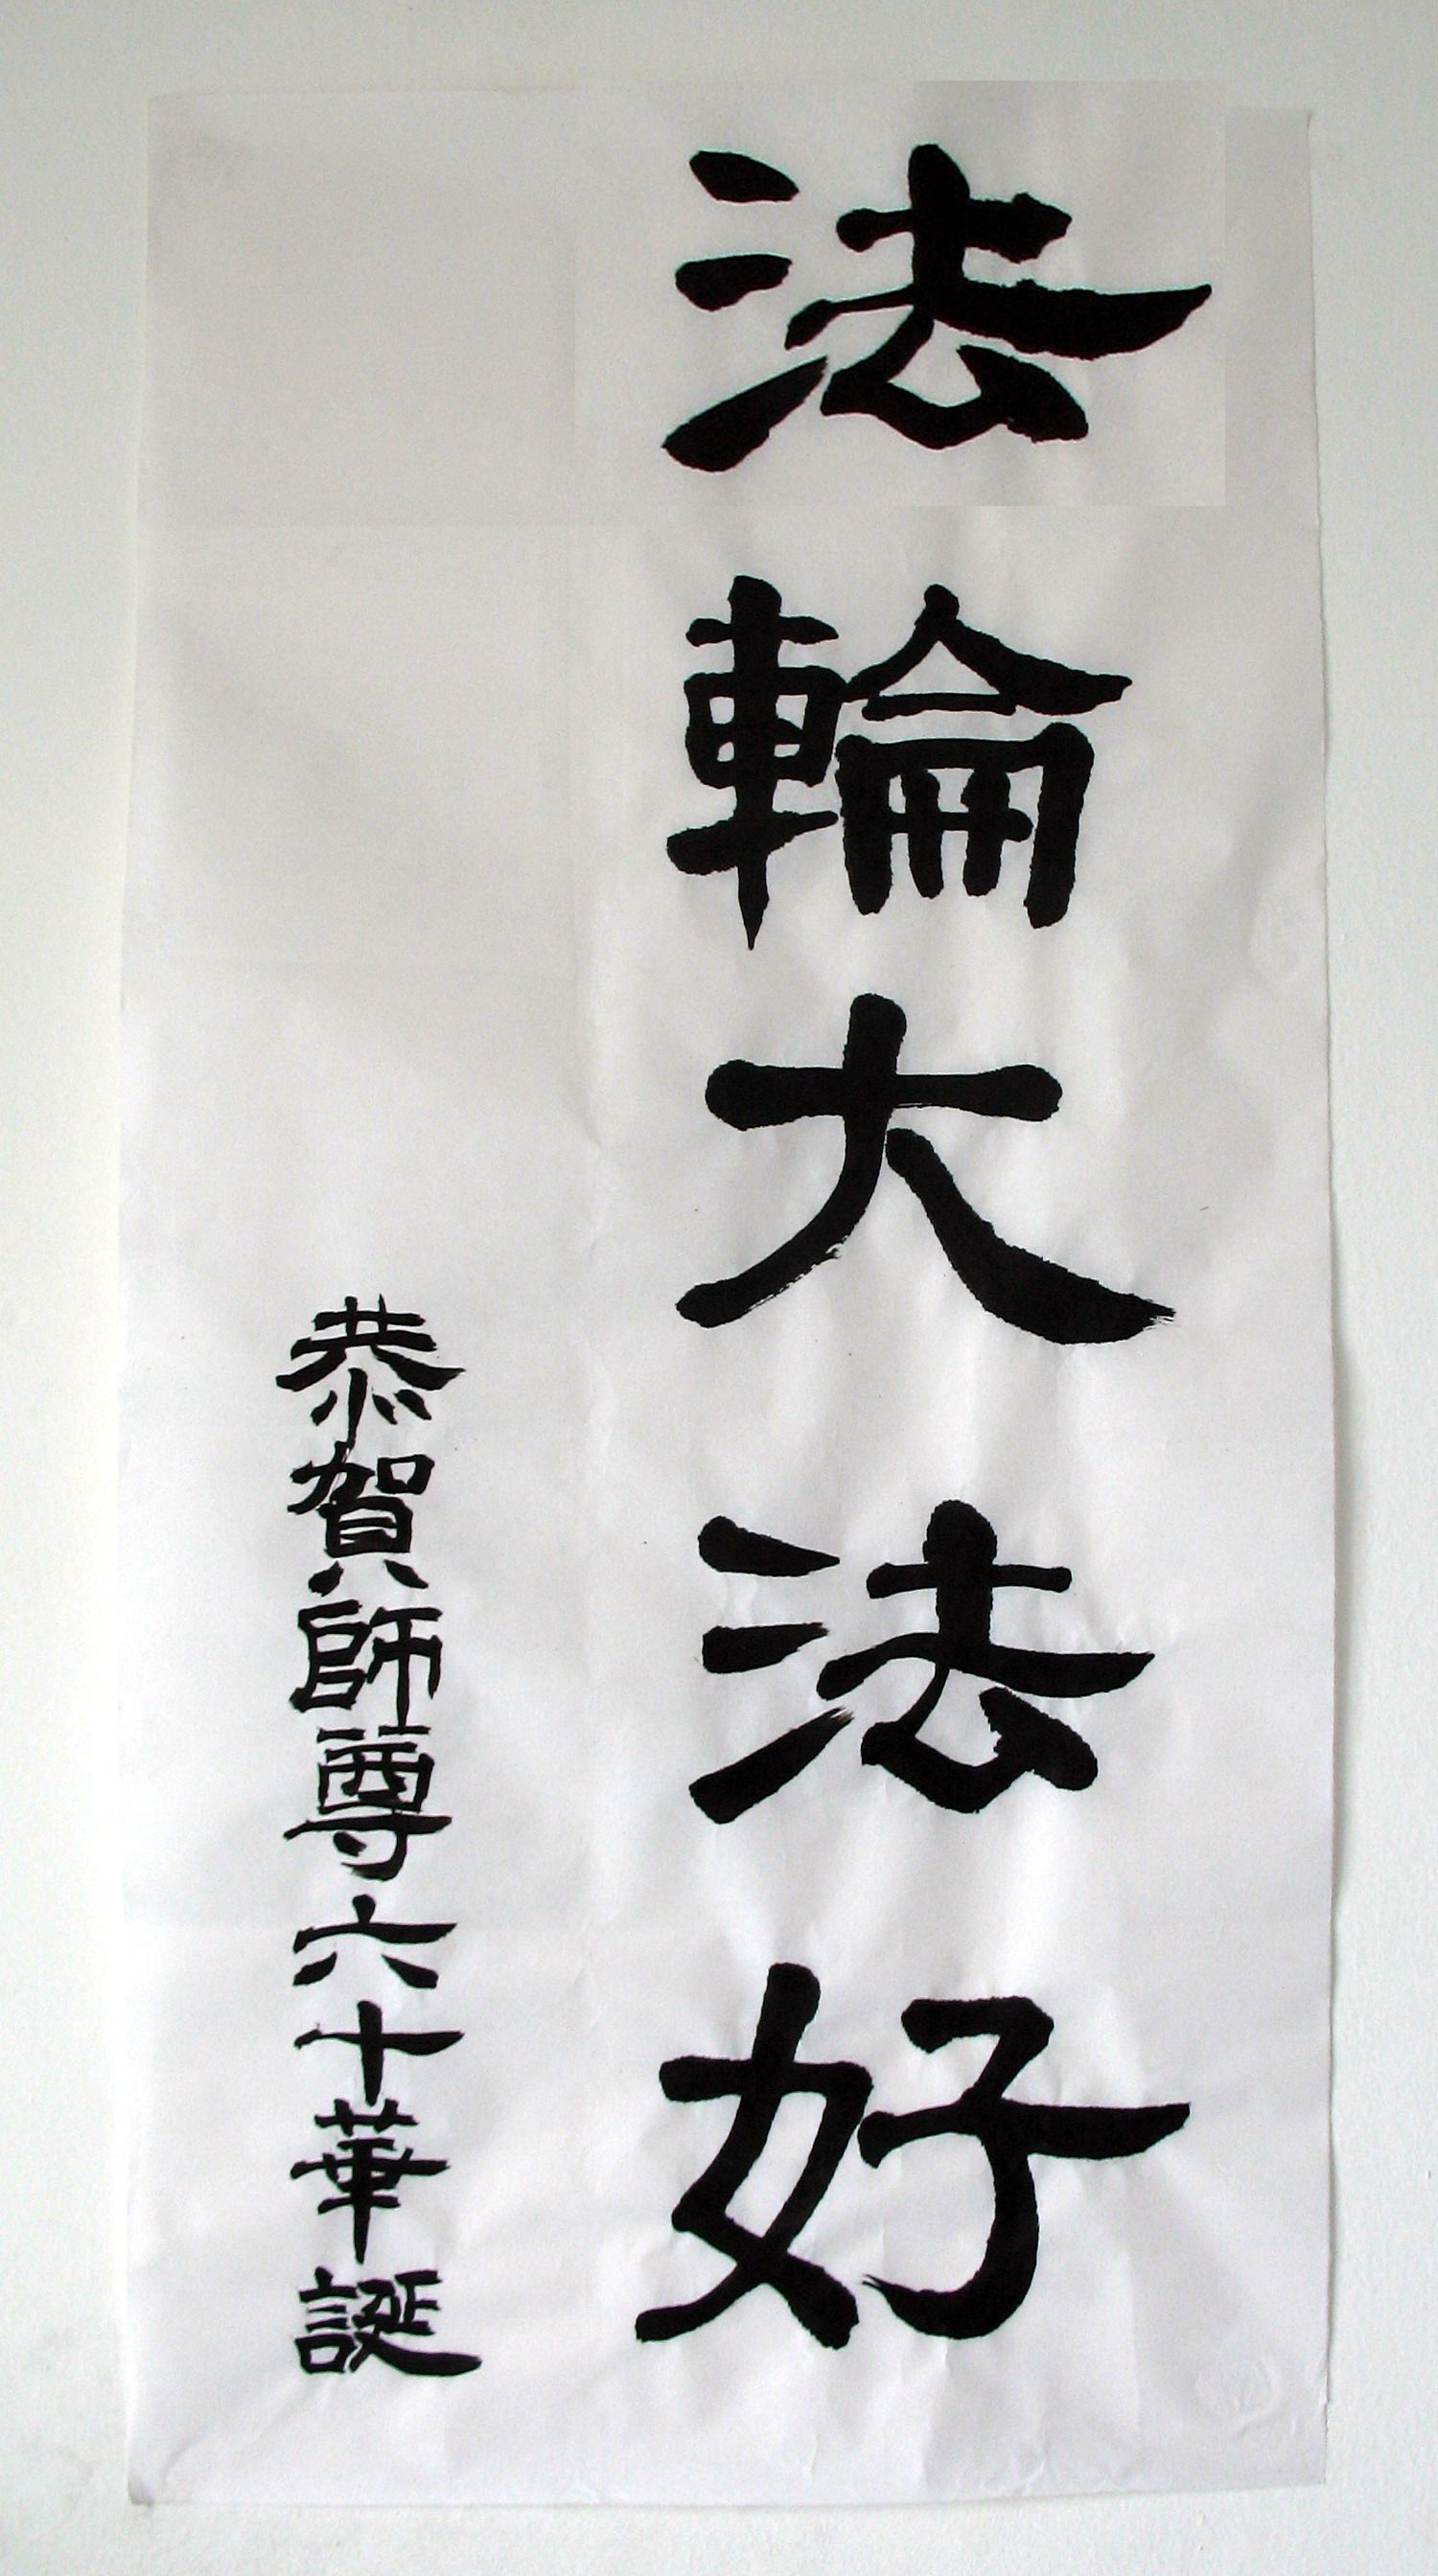 法輪大法好
恭賀師尊六十華誕